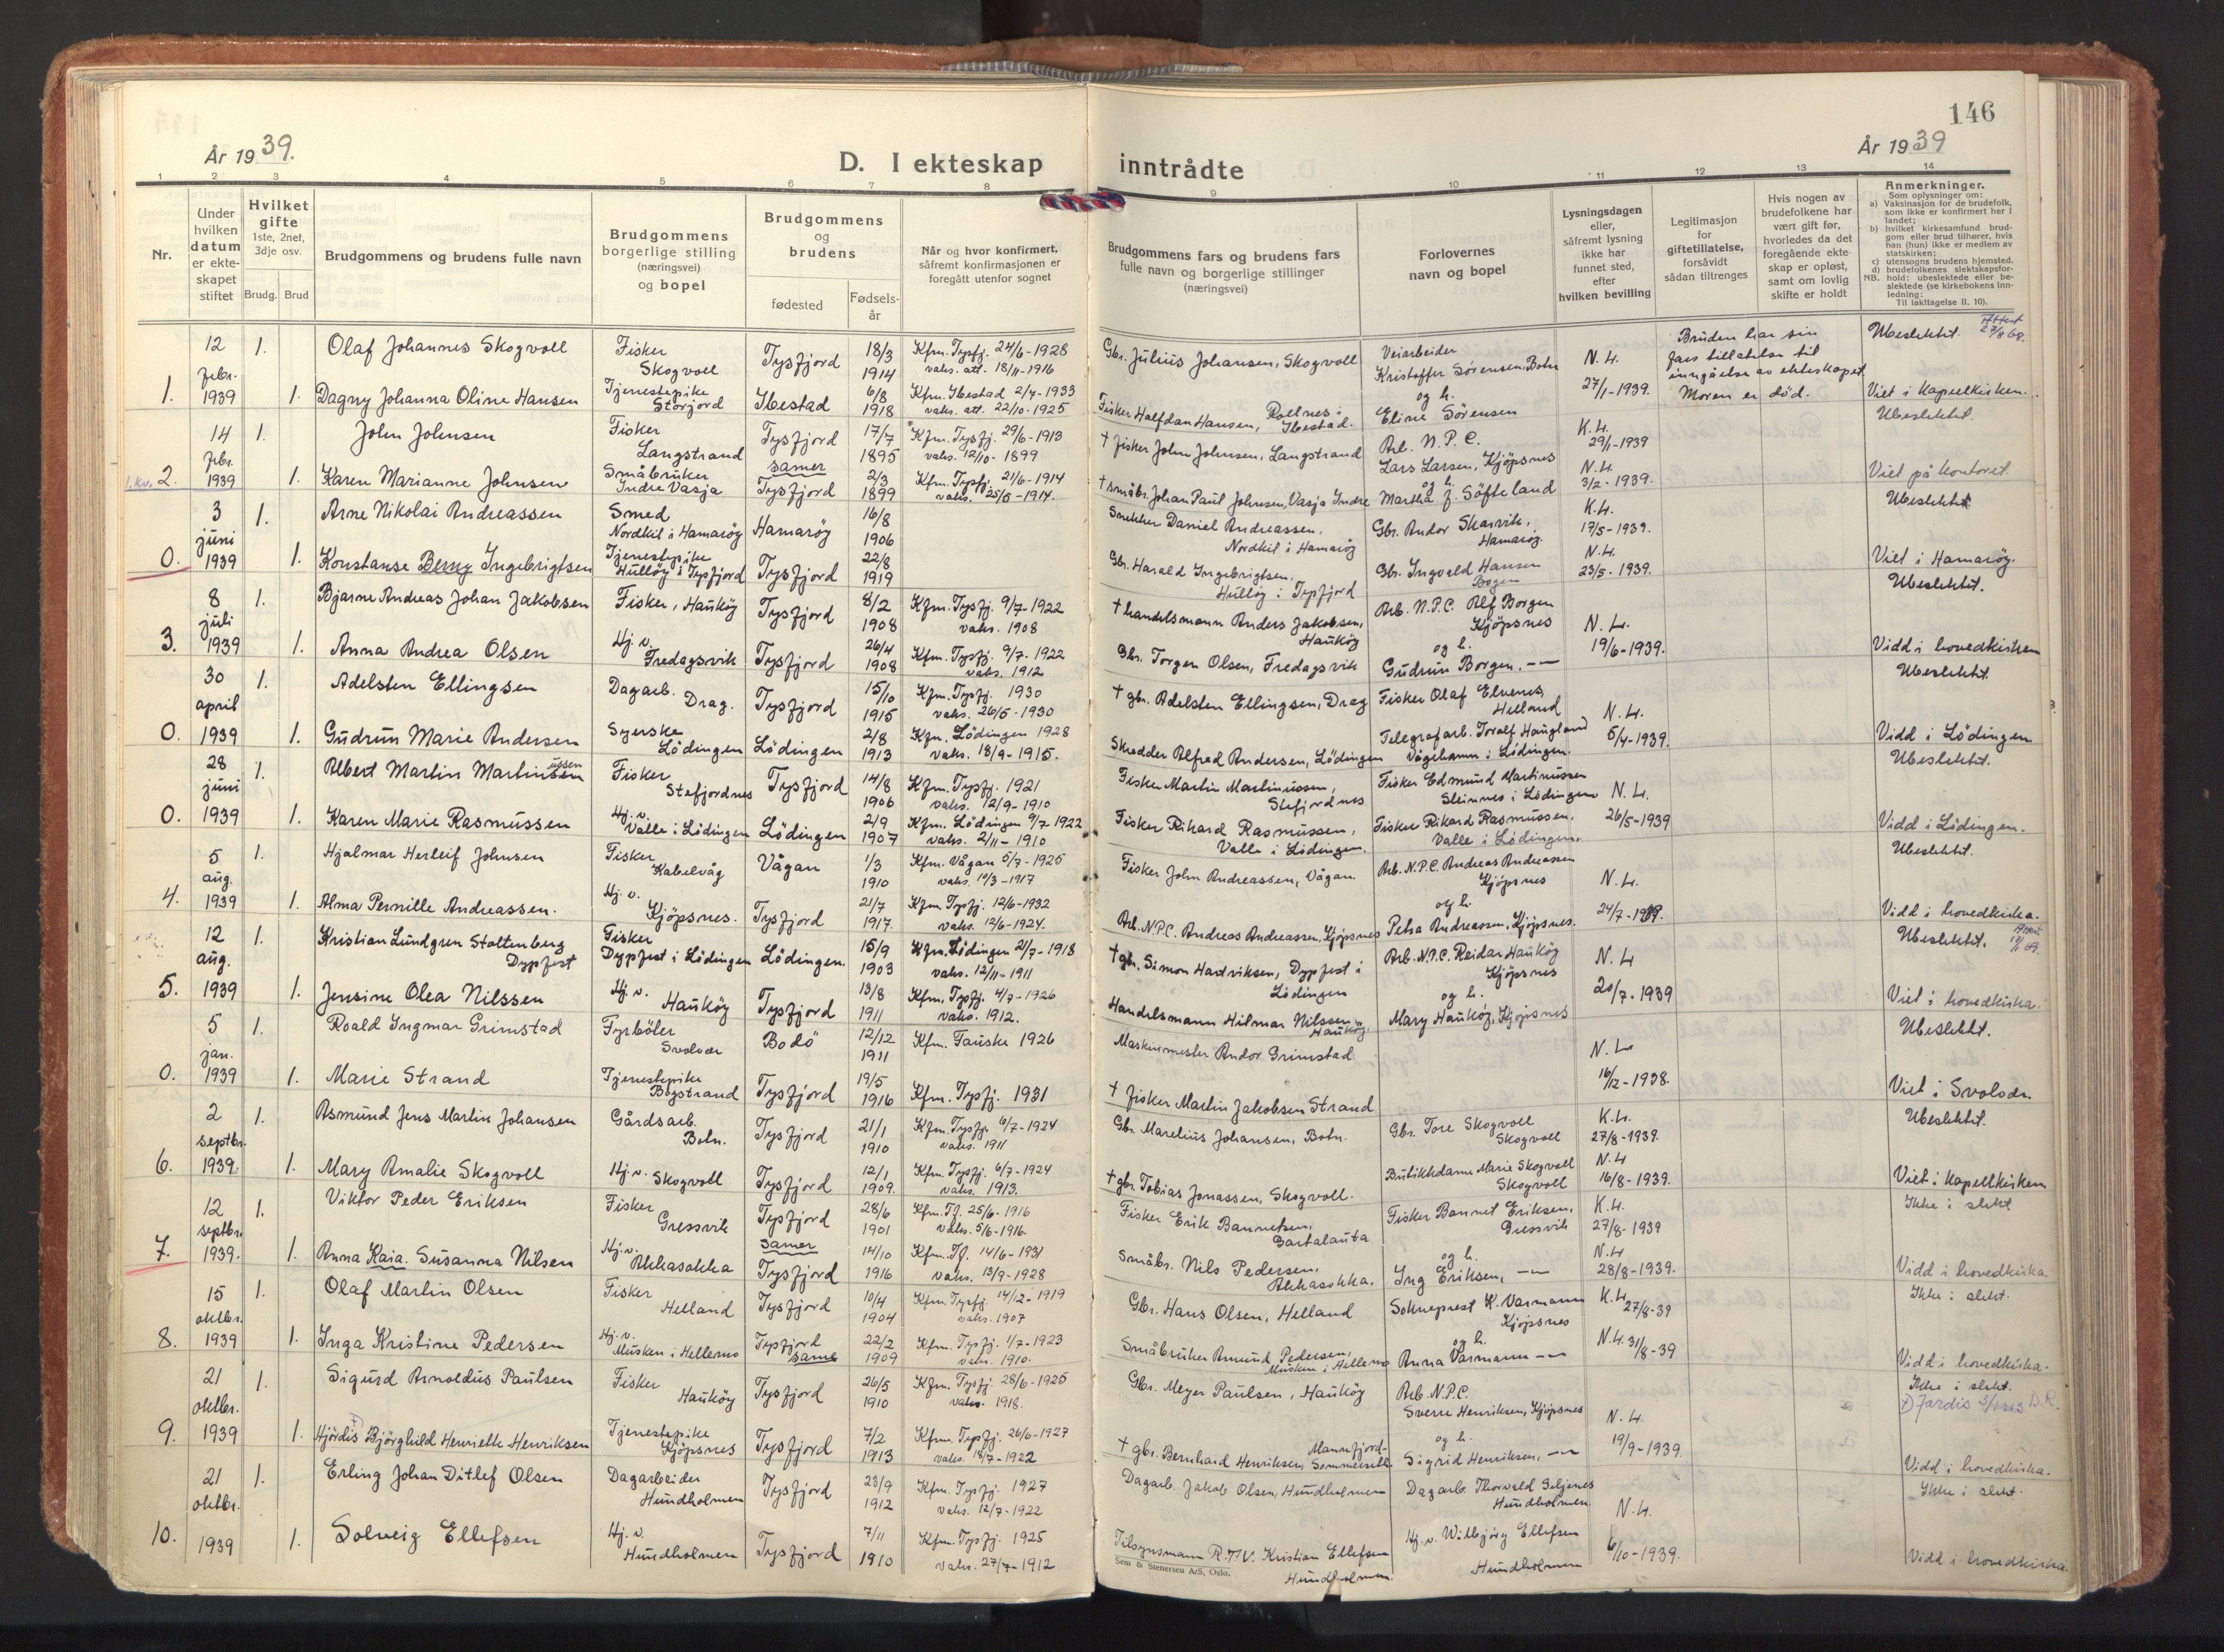 År 1939.
D. I ekteskap
1 2 3 4 5 6 7 8
Nr.
Under hvilken datum er ekteskapet stiftet
Hvilket gifte
1ste, 2net, 3dje osv.
Brudg. Brud
Brudgommens og brudens fulle navn
Brudgommens borgerlige stilling (næringsvei) og bopel
Brudgommens og brudens
fødested
Fødselsår
Når og hvor konfirmert, såfremt konfirmasjonen er foregått utenfor sognet
12 1. Olaf Johannes Skogvoll Fisker Skogvoll Tysfjord 18/3 1914 Kfm. Tysfj. 24/6-1928 vaks. att. 18/11-1916
febr.
1. 1939 1. Dagny Johanna Oline Hansen Tjenestepike Storjord Ibestad 6/8 1918 Kfm. Ibestad 2/7-1933 vaks. att. 22/10-1925
14 1. John Johnsen Fisker Langstrand Tysfjord 17/7 1895 Kfm. Tysfj. 29/6-1913 vaks. 12/10-1899
febr. samer
1. kv. 2. 1939 1. Karen Marianne Johnsen Småbruker Indre Vasja Tysfjord 2/3 1899 Kfm. Tysfj. 21/6-1914 vaks. 25/6-1914.
3 1. Arne Nikolai Andreassen Smed Nordkil i Hamarøy Hamarøy 16/8 1906
juni
0. 1939 1. Konstanse Berny Ingebrigtsen Tjenestepike Hulløy i Tysfjord Tysfjord 22/8 1919
8 1. Bjarne Andreas Johan Jakobsen Fisker, Haukøy Tysfjord 8/2 1908 Kfm. Tysfj. 9/7-1922 vaks. 1908
juli
3. 1939 1. Anna Andrea Olsen Hj. v. Fredagsvik Tysfjord 26/4 1908 Kfm. Tysfj. 9/7-1922 vaks. 1912
30 1. Adelsten Ellingsen Dagarb. Drag. Tysfjord 15/10 1915 Kfm. Tysfj. 1930 vaks. 26/5-1930
april
0. 1939 1. Gudrun Marie Andersen Syerske Lødingen Lödingen 2/8 1913 Kfm. Lödingen 1928 vaks. 18/9-1915.
28 1. Albert Martin Martinsen ussen Fisker Stefjordnes Tysfjord 14/8 1906 Kfm. Tysfj. 1921 vaks. 12/9-1910
juni
0. 1939 1. Karen Marie Rasmussen Hj. v. Valle i Lödingen Lödingen 2/9 1907 Kfm. Lödingen 9/7 1922 vaks. 2/11-1910
5 1. Hjalmar Herleif Johnsen Fisker Kabelvåg Vågan 1/3 1910 Kfm. Vågan 5/7-1925 vaks. 10/3-1917
aug.
4. 1939 1. Alma Pernille Andreassen. Hj. v. Kjöpsnes. Tysfjord 21/7 1917. Kfm. Tysfj. 12/6-1932 vaks. 12/6-1924.
12 1. Kristian Lundgren Stoltenberg Dypfest Fisker Dypfest i Lödingen Lödingen. 15/9 1903 Kfm. Lödingen 21/7-1918 vaks. 12/11-1911
aug.
5. 1939 1. Jensine Olea Nilssen Hj. v. Haukøy Tysfjord 13/8 1911 Kfm. Tysfj. 4/7-1926 vaks. 1912.
5 1. Roald Ingmar Grimstad Fyrböter Svolvær Bodö 12/12 1911 Kfm. Fauske 1926
jan.
0. 1939 1. Marie Strand Tjenestepike Bogstrand Tysfjord 19/5 1916 Kfm. Tysfj. 1931
2 1. Asmund Jens Martin Johansen Gårdsarb. Botn. Tysfjord 21/1 1910 Kfm. Tysfj. 6/7-1924 vaks. 1911
septbr.
6. 1939. 1. Mary Amalie Skogvoll Hj. v. Skogvoll Tysfjord 12/1 1909. Kfm. Tysfj. 6/7-1924 vaks. 1913.
12 1. Viktor Peder Eriksen Fisker Gressvik Tysfjord 28/6 1901 Kfm. Tf. 25/6-1916 vaks. 5/6-1916.
septbr. samer
7. 1939. 1. Anna Kaia. Susanna Nilsen Hj. v. Akkasokka Tysfjord 14/10 1916 Kfm. Tf. 14/6-1931 vaks. 13/9-1928
15 1. Olaf Martin Olsen Fisker Helland Tysfjord 10/4 1904 Kfm. Tysfj. 14/12-1919 vaks. 1907
oktbr.
8. 1939 1. Inga Kristine Pedersen Hj. v. Musken i Hellemo Tysfjord same 22/2 1909 Kfm. Tysfj. 1/7-1923 vaks. 1910.
21 1. Sigurd Arnoldus Paulsen Fisker Haukøy Tysfjord 26/5 1910 Kfm. Tysfj. 28/6-1925 vaks. 1918.
oktbr.
9. 1939 1. Hjördis Björghild Henriette Henriksen Tjenestepike Kjöpsnes Tysfjord 7/2 1913 Kfm. Tysfj. 26/6-1927 vaks. 13/7-1922
21 1. Erling Johan Ditlef Olsen Dagarbeider Hundholmen Tysfjord 23/9 1912 Kfm. Tysfj. 1927 vaks. 12/7-1922
oktbr.
10. 1939 1. Solveig Ellefsen Hj. v. Hundholmen Tysfjord 7/11 1910 Kfm. Tysfj. 1925 vaks. 27/7-1912
146
År 1939
inntrådte
9 10 11 12 13 14
Brudgommens fars og brudens fars fulle navn og borgerlige stillinger (næringsvei)
Forlovernes navn og bopel
Lysningsdagen eller, såfremt lysning ikke har funnet sted, efter hvilken bevilling
Legitimasjon for giftetillatelse, forsåvidt sådan tiltrenges
Hvis nogen av brudefolkene har vært gift før, hvorledes da det foregående ekteskap er opløst, samt om lovlig skifte er holdt
Anmerkninger.
Som oplysninger om:
a) Vaksinasjon for de brudefolk, som ikke er konfirmert her i landet;
b) hvilket kirkesamfund brudgom eller brud tilhører, hvis han (hun) ikke er medlem av statskirken;
c) utensogns brudens hjemsted.
d) brudefolkenes slektskapsforhold: ubeslektede eller beslektede (se kirkebokens innledning:
NB.
Til iakttagelse II. 10).
Gbr. Julius Johansen, Skogvoll Veiarbeider Kristoffer Sørensen, Botn N. L. Bruden har sin fars tillatelse til inngåelse av ekteskapet Ubeslektet. Attest 27/8 68.
Fisker Halfdan Hansen, Rollnes i Ibestad. og h. Eline Sørensen 27/1-1939. Moren er död. Viet i kapellkirken.
† fisker John Johnsen, Langstrand Arb. N.P.C. Lars Larsen, Kjöpsnes K.L. 29/1-1939 Ubeslektet.
† småbr. Johan Paul Johnsen, Vasja Indre og h. Martha J. Söfteland N.L. 3/2-1939. Viet på kontoret.
Snekker Daniel Andreassen, Nordkil i Hamarøy Gbr. Andor Skarvik, Hamarøy. K.L. 17/5-1939. Ubeslektet
Gbr. Harald Ingebrigtsen, Hulløy i Tysfjord Gbr. Ingvald Hansen Bogen N.L. 23/5-1939. Viet i Hamarøy.
† handelsmann Anders Jakobsen, Haukøy Arb. N.P.C. Alf Borgen Kjöpsnes N. L. Ubeslektet.
Gbr. Torger Olsen, Fredagsvik og h. Gudrun Borgen, — 19/6-1939. Vidd i hovedkirken
† gbr. Adelsten Ellingsen, Drag Fisker Olaf Elvenes Helland N. L. Ubeslektet.
Skredder Alfred Andersen, Lödingen Telegrafarb. Toralf Haugland Vågehamn i Lödingen. 5/4-1939. Vidd i Lödingen
Fisker Martin Martinussen, Stefjordnes Fisker Edmund Martinussen Steinnes i Lödingen N. L. Ubeslektet.
Fisker Rikard Rasmussen, Valle i Lödingen. Fisker Rikard Rasmussen, Valle i Lödingen. 26/5-1939 Vidd i Lödingen.
Fisker John Andreassen, Vågan. Arb. N.P.C. Andreas Andreassen Kjöpsnes N. L. Ubeslektet.
Arb. N.P.C. Andreas Andreassen, Kjöpsnes og h. Petra Andreassen, Kjöpsnes. 24/7-1939. Vidd i hovedkirka.
† gbr. Simon Hartviksen, Dypfest i Lödingen Arb. N.P.C. Reidar Haukøy Kjöpsnes N. L Ubeslektet.
Handelsmann Hilmar Nilssen, Haukøy og h. Mary Haukøy, Kjöpsnes 20/7-1939 Viet i hovedkirka.
Maskinmester Andor Grimstad N. L. Ubeslektet.
† fisker Martin Jakobsen Strand 16/12-1938. Viet i Svolvær
Gbr. Marelius Johansen, Botn. Gbr. Tore Skogvoll Skogvoll K.L. 27/8-1939. Ubeslektet.
† gbr. Tobias Jonassen, Skogvoll. Butikkdame Marie Skogvoll Skogvoll N.L 16/8-1939. Viet i kapellkirken
Fisker Erik Bannetsen, Gartalauta Fisker Bannet Eriksen, Gressvik K.L. 27/8-1939 Ikke i slekt
Småbr. Nils Pedersen, Akkasokka. og h. Ing Eriksen, — N.L 28/8-1939. Vidd i hovedkirka
Gbr. Hans Olsen, Helland Sokneprest K. Varmann Kjöpsnes K.L. 27/8-39 Ikke i slekt.
Småbruker Amund Pedersen, Musken i Hellemo og h. Anna Varmann — N.L. 31/8-39 Vidd i hovedkirka.
Gbr. Meyer Paulsen, Haukøy Arb. N.P.C. Sverre Henriksen, Kjöpsnes N. L. Ikke i slekt.
† gbr. Bernhard Henriksen, Mannfjord- og h. Sigrid Henriksen, — 19/9-1939. Vidd i hovedkirka.
Dagarb. Jakob Olsen, Hundholmen Dagarb. Thorvald Seljenes Hundholmen N. L. Ikke i slekt.
Tilsynsmann R.T.V. Kristian Ellefsen Hundholmen. Hj. v. Wilbjørg Ellefsen Hundholmen 6/10-1939. Vidd i hovedkirka
Sem & Stenersen A/S, Oslo.